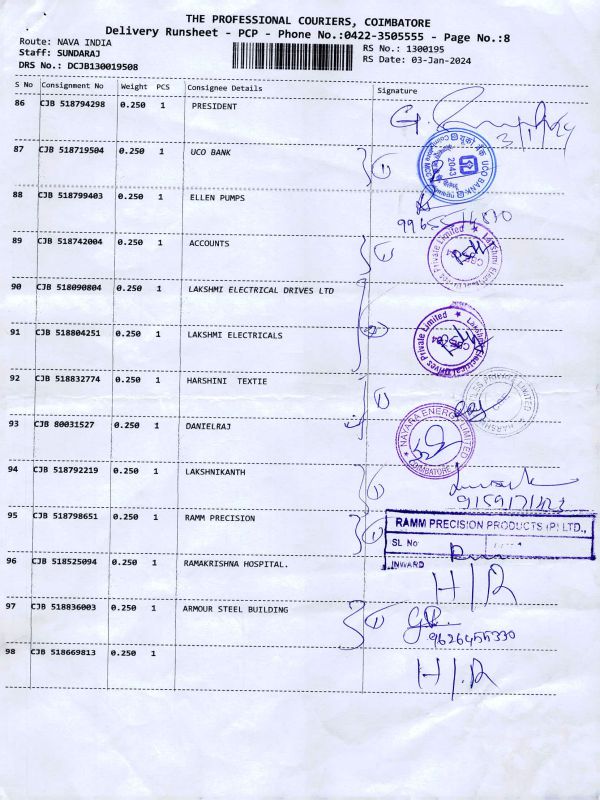 THE PROFESSIONAL COURIERS, COIMBATORE
Delivery Runsheet - PCP - Phone No.:0422-3505555 - Page No.:8
Route: NAVA INDIA RS No.: 1300195
Staff: SUNDARAJ RS Date: 03-Jan-2024
DRS No.: DCJB130019508
S No Consignment No Weight PCS Consignee Details Signature
86 CJB 518794298 0.250 1 PRESIDENT
87 CJB 518719504 0.250 1 UCO BANK
UCO BANK
2043
88 CJB 518799403 0.250 1 ELLEN PUMPS
89 CJB 518742004 0.250 1 ACCOUNTS
Lakshmi Electrical Drives Private Limited
90 CJB 518090804 0.250 1 LAKSHMI ELECTRICAL DRIVES LTD
91 CJB 518804251 0.250 1 LAKSHMI ELECTRICALS
Lakshmi Electrical Drives Private Limited
92 CJB 518832774 0.250 1 HARSHINI TEXTIE
93 CJB 80031527 0.250 1 DANIELRAJ
NAYARA ENERGY LIMITED
COIMBATORE
94 CJB 518792219 0.250 1 LAKSHNIKANTH
95 CJB 518798651 0.250 1 RAMM PRECISION
RAMM PRECISION PRODUCTS (P) LTD.,
SL No
INWARD
96 CJB 518525094 0.250 1 RAMAKRISHNA HOSPITAL.
H/R
97 CJB 518836003 0.250 1 ARMOUR STEEL BUILDING
9626455330
98 CJB 518669813 0.250 1
H/R